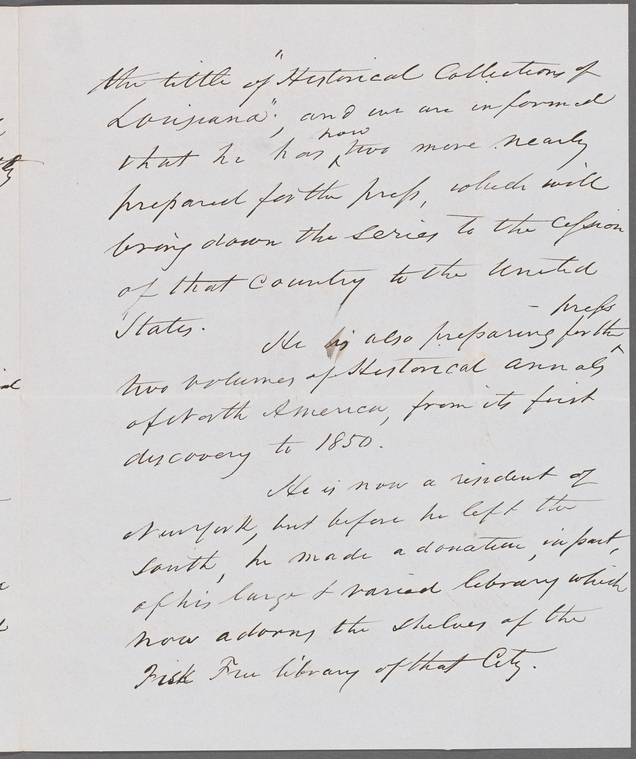 the tittle of "Historical Collections of
Louisiana", and we are informed
that he has now two more nearly
prepared for the press, which will
bring down the series to the cession
of that Country to the United
States.
He is also preparing for the press
two volumes of Historical annals
of North America, from its first
discovery to 1850.
He is now a resident of
New York, but before he left the
South, he made a donation, in part,
of his large & varied library which
now adorns the shelves of the
Fisk Free library of that City.